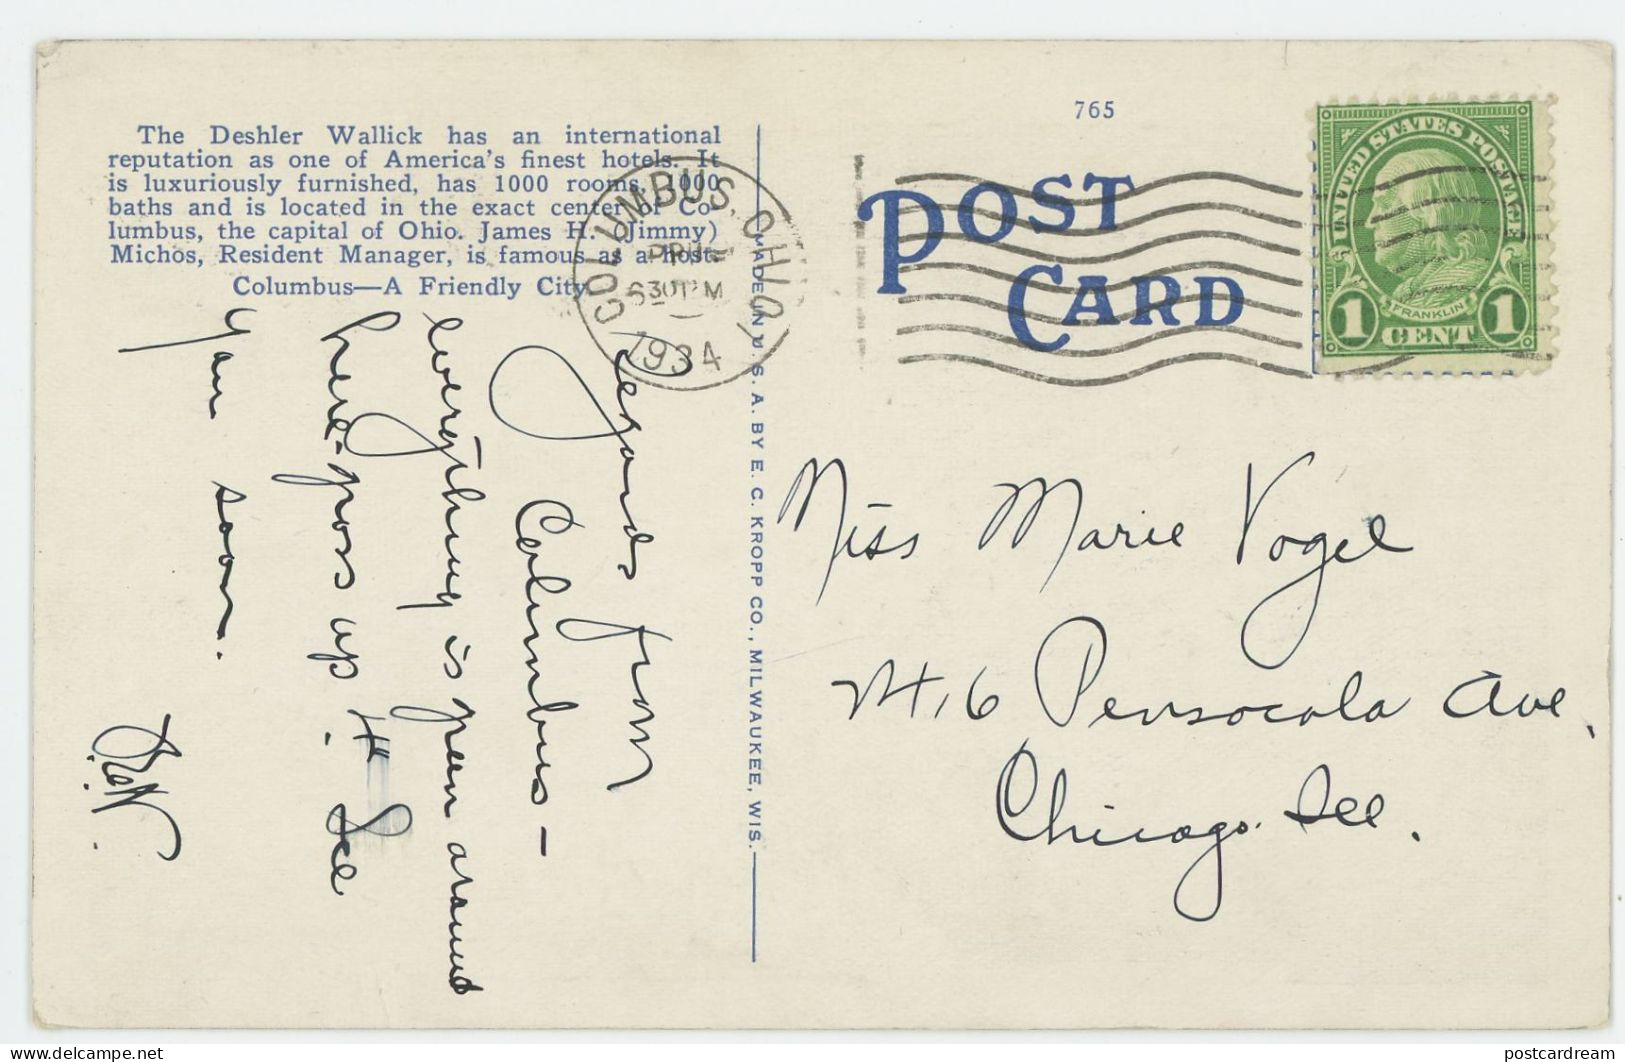 The Deshler Wallick has an international
reputation as one of America's finest hotels. It
is luxuriously furnished, has 1000 rooms, 1000
baths and is located in the exact center of Co-
lumbus, the capital of Ohio. James H. (Jimmy)
Michos, Resident Manager, is famous as a host.
Columbus—A Friendly City
Regards from
Columbus –
everything is green around
here - grass up. H See
You soon.
MADE IN U. S. A. BY E. C. KROPP CO., MILWAUKEE, WIS.
COLUMBUS, OHIO
630 PM
1934
765
POST
CARD
UNITED STATES POSTAGE
FRANKLIN
1 CENT 1
Miss Marie Vogel
Pensocola Ave.
Chicago. Ill.
postcardream